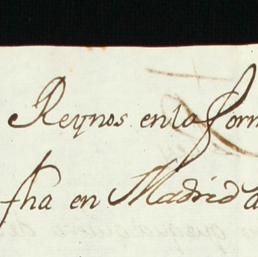 Reynos en la form
fha en Madrid a